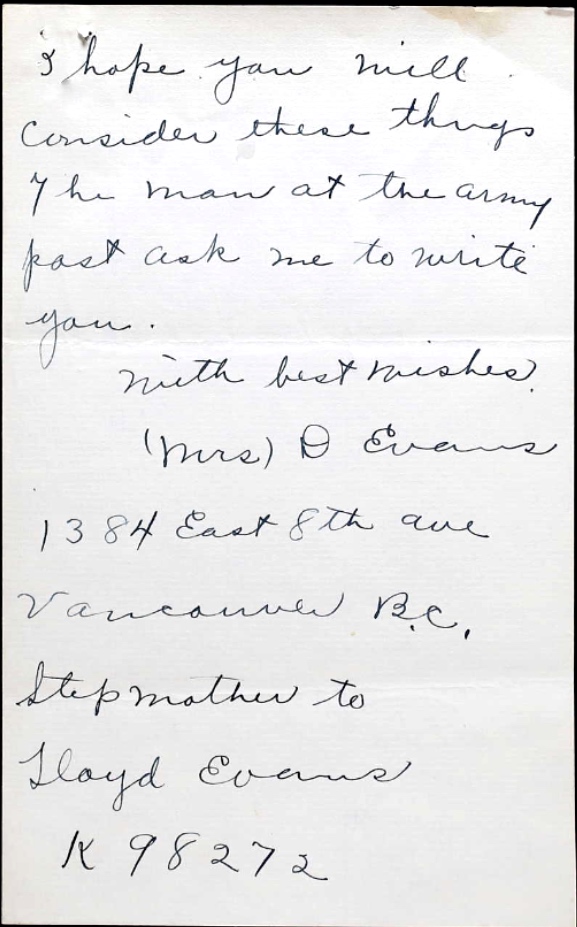 I hope you will
Consider these things
The man at the army
post ask me to write
you.
with best wishes.
(Mrs) D Evans
1384 East 8th ave
Vancouver B.C.
Stepmother to
Lloyd Evans
K 98272